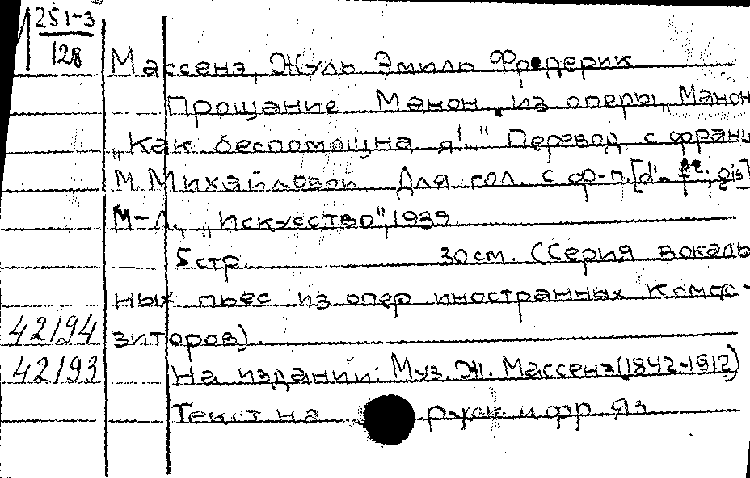 251-3
128
Массенэ, Жуль Эмиль Фредерик
Прощание Манон, из оперы „Манон
„Как беспомощна я!.." Перевод с франц
М. Михайловой Для гол. с ф-п.
М-Л., „Искусство", 1939
5 стр. 30 см. (Серия вокаль
ных пьес из опер иностранных компо-
42194 зиторов).
42193 На издании: Муз. Ж. Массенэ (1842-1912)
Текст на русск и фр. яз